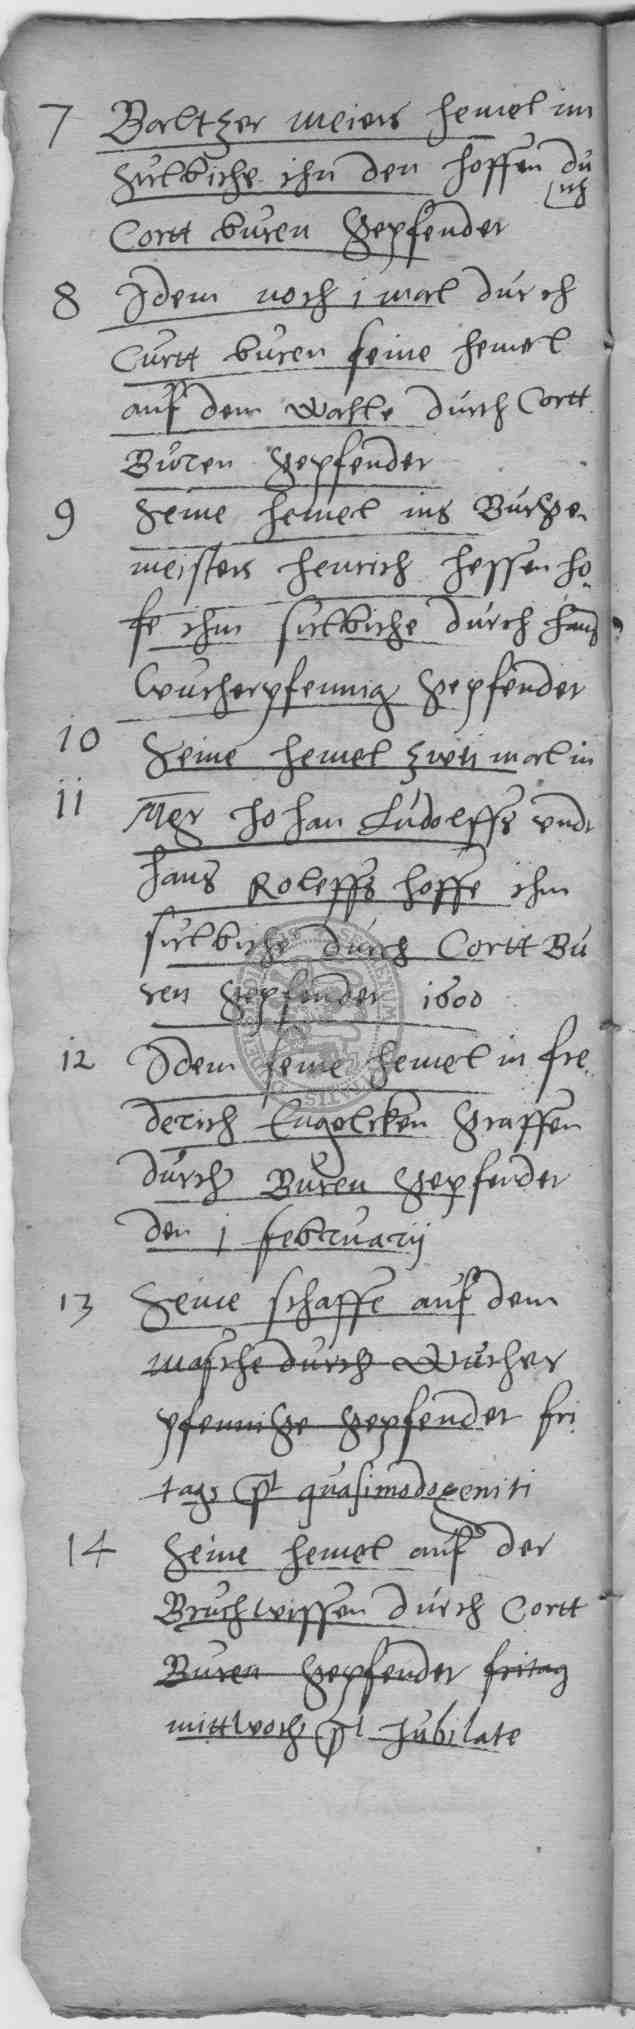 7 Baltzer Meiers hemel im
Sultbiche ihn den hoffen du
rch
Cortt buren gepfendet
8 Idem noch 1 mal durch
Curtt buren seine hemel
auf dem walle durch Cortt
Buren gepfendet
9 Seine hemel ins Burge
meisters henrich hessen ho
fe ihm sultbiche durch hans
Wucherpfennig gepfendet
10 Seine hemel zwei mal in
11 Mgr Johan Ludolffs undt
hans Roleffs hoffe ihm
sultbiche durch Cortt Bu
ren gepfendet 1600
12 Idem seine hemel in fre
derich Engelcken graffen
durch Buren gepfendet
den 1 februarij
13 Seine schaffe auf dem
masche durch Wucher
pfennige gepfendet fri
tags pt quasimodogeniti
14 Seine hemel auf der
Bruchwissen durch Cortt
Buren gepfendet fritag
mittwoch pt Jubilate